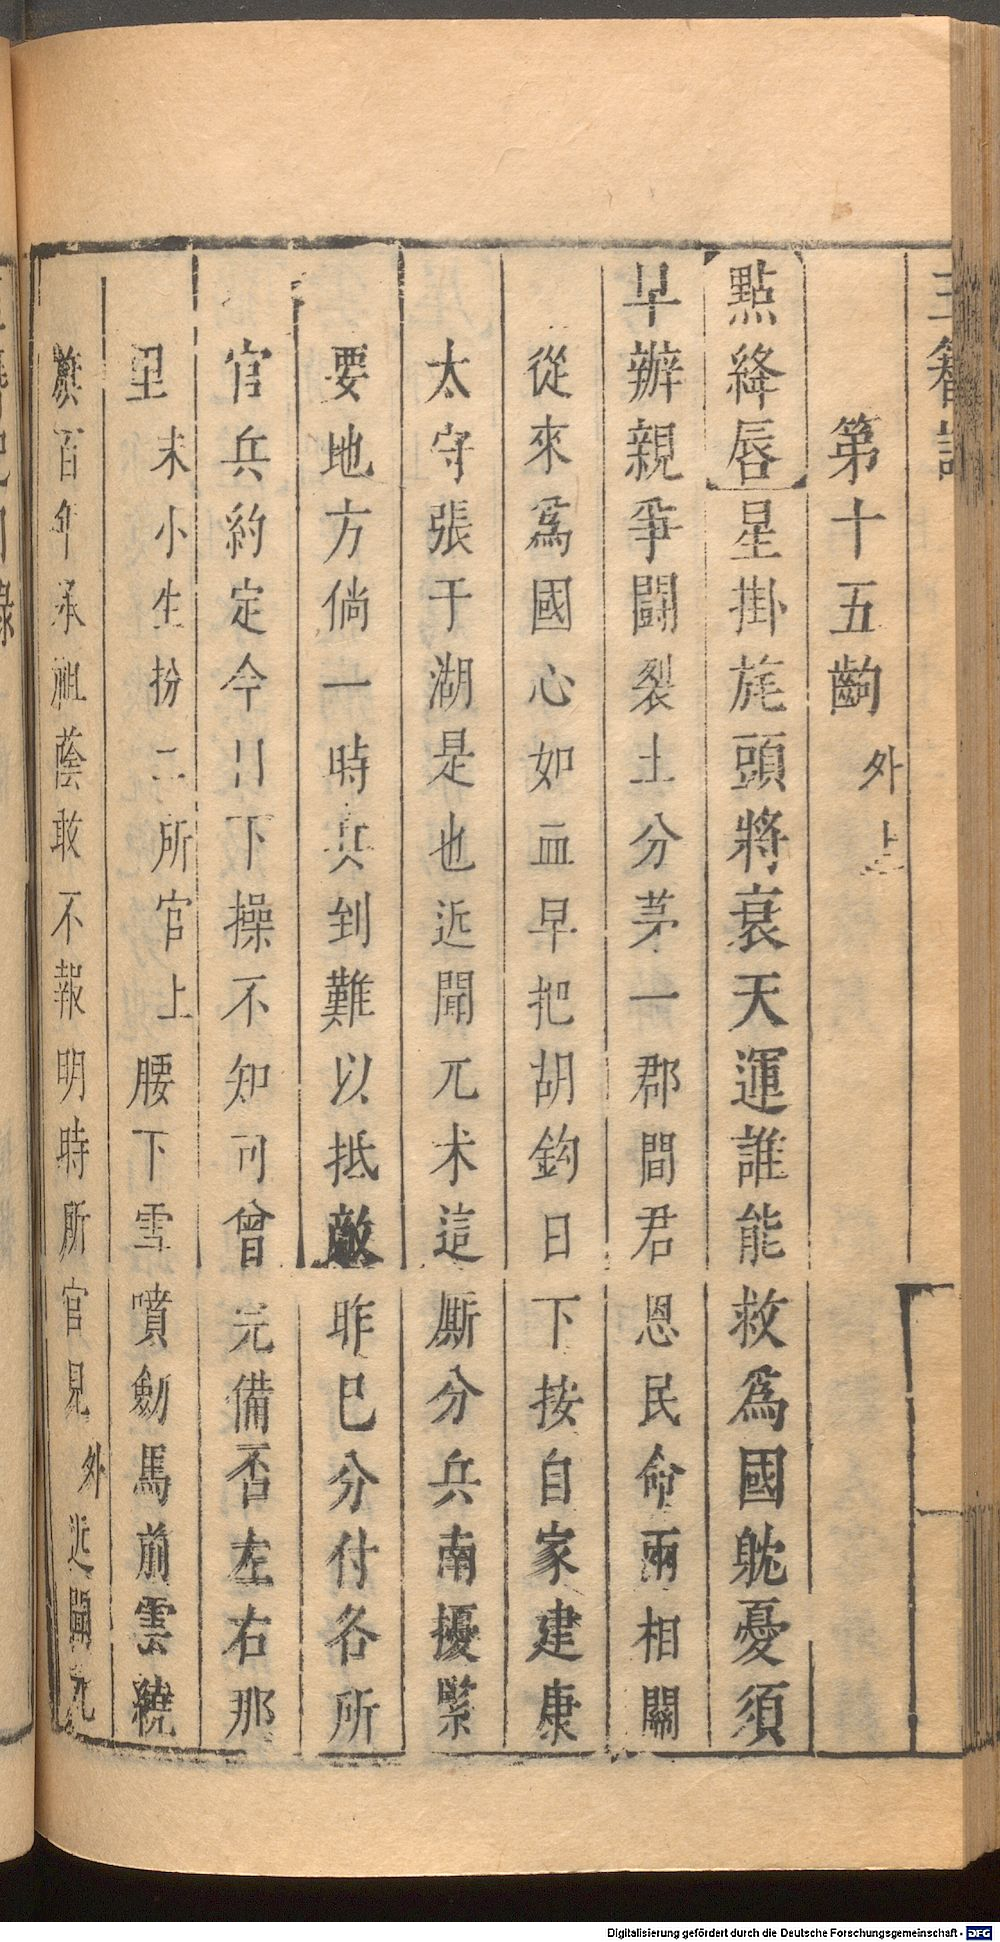 第十五齣 外上
點絳唇 星掛旄頭將衰天運誰能救爲國躭憂須
早辦親爭鬪裂土分茅一郡間君恩民命兩相關
從來爲國心如血早把胡鈎日下按自家建康
太守張于湖是也近聞兀术這厮分兵南擾緊
要地方倘一時兵到難以抵敵昨已分付各所
官兵約定今日下操不知可曾完備否左右那
里 末小生扮二所官上 腰下雪噴劍馬前雲繞
旗百年承祖蔭敢不報明時所官見 外 近聞兀
Digitalisierung gefördert durch die Deutsche Forschungsgemeinschaft - DFG